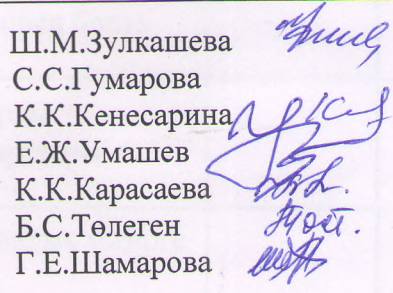 Ш.М.Зулкашева
С.С.Гумарова
К.К.Кенесарина
Е.Ж.Умашев
К.К.Карасаева
Б.С.Төлеген
Г.Е.Шамарова